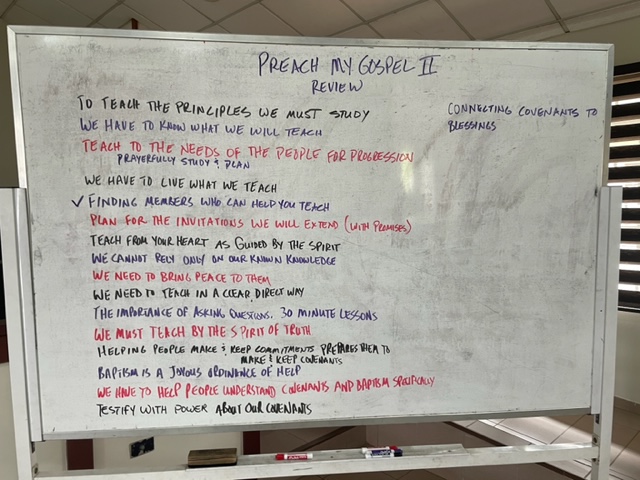 PREACH MY GOSPEL II
REVIEW
TO TEACH THE PRINCIPLES WE MUST STUDY
WE HAVE TO KNOW WHAT WE WILL TEACH
TEACH TO THE NEEDS OF THE PEOPLE FOR PROGRESSION
PRAYERFULLY STUDY & PLAN
WE HAVE TO LIVE WHAT WE TEACH
✓ FINDING MEMBERS WHO CAN HELP YOU TEACH
PLAN FOR THE INVITATIONS WE WILL EXTEND (WITH PROMISES)
TEACH FROM YOUR HEART AS GUIDED BY THE SPIRIT
WE CANNOT RELY ONLY ON OUR KNOWN KNOWLEDGE
WE NEED TO BRING PEACE TO THEM
WE NEED TO TEACH IN A CLEAR DIRECT WAY
THE IMPORTANCE OF ASKING QUESTIONS. 30 MINUTE LESSONS
WE MUST TEACH BY THE SPIRIT OF TRUTH
HELPING PEOPLE MAKE & KEEP COMMITMENTS PREPARES THEM TO
MAKE & KEEP COVENANTS
BAPTISM IS A JOYOUS ORDINENCE OF HELP
WE HAVE TO HELP PEOPLE UNDERSTAND COVENANTS AND BAPTISM SPECIFICALLY
TESTIFY WITH POWER ABOUT OUR COVENANTS
CONNECTING COVENANTS TO
BLESSINGS